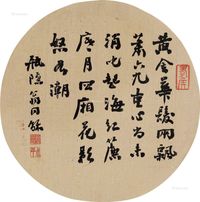 黃金華髮兩飄
蕭六九童心尚未
消叱起海紅簾
底月四廂花影
怒於潮
瓶隱翁同龢